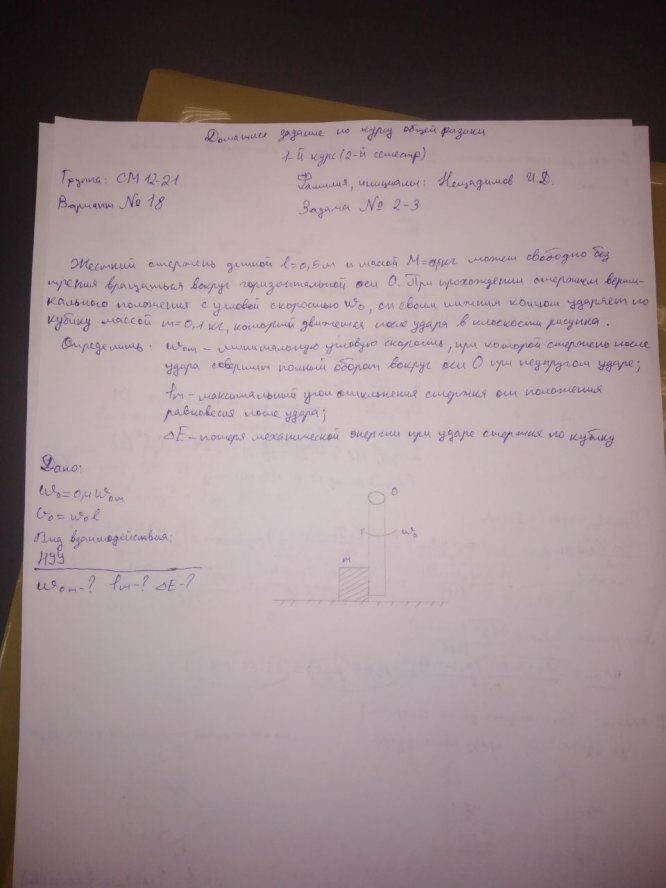 Домашнее задание по курсу общей физики
1-й курс (2-й семестр)
Группа: СМ 12-21 Фамилия, инициалы: Нещадимов И.Д.
Вариант № 18 Задача № 2-3
Жесткий стержень длиной l=0,5м и массой может свободно без
трения вращаться вокруг горизонтальной оси О. При прохождении стержнем верти-
кального положения с угловой скоростью ω₀, он своим нижним концом ударяет по
кубику массой m=0,1 кг, который движется после удара в плоскости рисунка.
Определить: ω₀m – минимальную угловую скорость, при которой стержень после
удара совершит полный оборот вокруг оси О при недеругом ударе;
φm – максимальный угол отклонения стержня от положения
равновесия после удара;
ΔE – потеря механической энергии при ударе стержня по кубику
Дано:
ω₀=0,4ω₀m
υ₀=ω₀l
Вид взаимодействия:
НУУ
ω₀m-? φm-? ΔE-?
О
ω₀
m